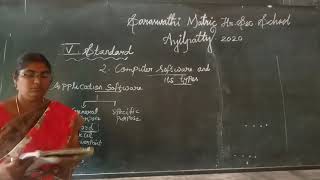 Saraswathi Matric Hr. Sec School
Ayilpatty 2020
V. Standard
2. Computer Software and
its types
Application Software
General Specific
Purpose Purpose
Word
Excel
PowerPoint